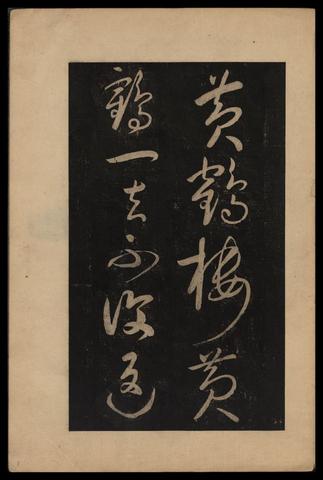 黄鶴樓黄
鶴一去不復返